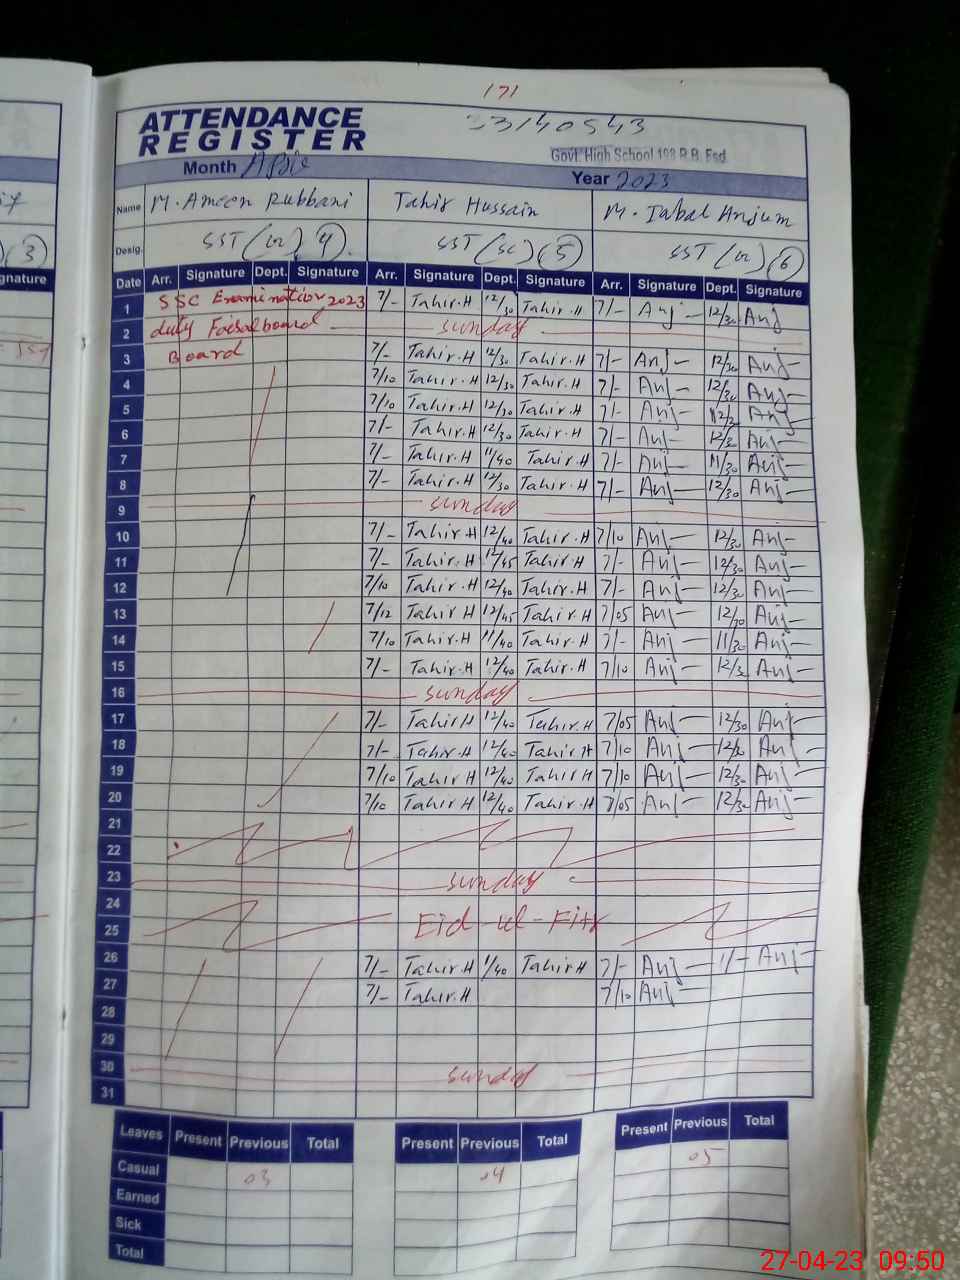 171
ATTENDANCE REGISTER
33140543
Govt. High School 193 R.B. Fsd.
Month Year 2023
Name M. Ameen Rubbani Tahir Hussain M. Iqbal Anjum
Desig. SST 4 SST (Sc) 5 SST 6
3
Signature
Date Arr. Signature Dept. Signature Arr. Signature Dept. Signature Arr. Signature Dept. Signature
1 SSC Examination 2023 7/- Tahir.H 12/30 Tahir.H 7/- Anj 12/30 Anj
2 duty Faisalboard sunday
3 Board 7/- Tahir.H 12/30 Tahir.H 7/- Anj 12/30 Anj
4 7/10 Tahir.H 12/30 Tahir.H 7/- Anj 12/30 Anj
5 7/10 Tahir.H 12/30 Tahir.H 7/- Anj Anj
6 7/- Tahir.H 12/30 Tahir.H 7/- Anj 12/30 Anj
7 7/- Tahir.H 11/40 Tahir.H 7/- Anj 11/30 Anj
8 7/- Tahir.H 12/30 Tahir.H 7/- Anj 12/30 Anj
9 sunday
10 7/- Tahir.H 12/40 Tahir.H 7/10 Anj 12/30 Anj
11 7/- Tahir.H 12/45 Tahir.H 7/- Anj 12/30 Anj
12 7/10 Tahir.H 12/40 Tahir.H 7/- Anj 12/30 Anj
13 7/12 Tahir H 12/45 Tahir.H 7/05 Anj 12/30 Anj
14 7/10 Tahir.H 11/40 Tahir.H 7/- Anj 11/30 Anj
15 7/- Tahir.H 12/40 Tahir.H 7/10 Anj 12/30 Anj
16 sunday
17 7/- Tahir H 12/40 Tahir.H 7/05 Anj 12/30 Anj
18 7/- Tahir.H 12/40 Tahir H 7/10 Anj 12/30 Anj
19 7/10 Tahir H 12/40 Tahir H 7/10 Anj 12/30 Anj
20 7/10 Tahir H 12/40 Tahir.H 7/05 Anj 12/30 Anj
21
22
23 sunday
24
25 Eid-ul-Fitr
26 7/- Tahir.H 1/40 Tahir H 7/- Anj 1/- Anj
27 7/- Tahir.H 7/10 Anj
28
29
30 sunday
31
Leaves Present Previous Total Present Previous Total Present Previous Total
Casual 03 04 05
Earned
Sick
Total
27-04-23 09:50